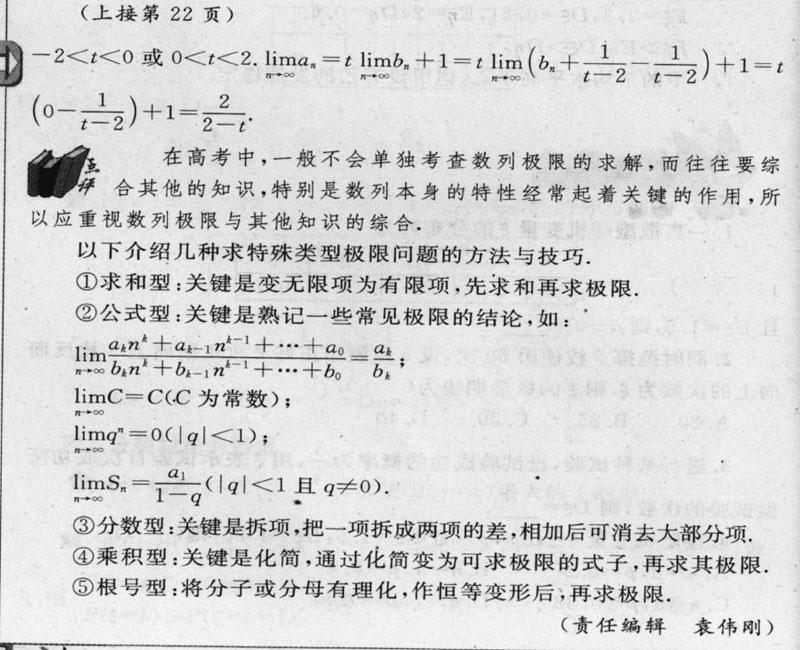 （上接第 22 页）
－2<t<0 或 0<t<2. lim_{n→∞} a_n = t lim_{n→∞} b_n + 1 = t lim_{n→∞} (b_n + \frac{1}{t-2} - \frac{1}{t-2}) + 1 = t
(0 - \frac{1}{t-2}) + 1 = \frac{2}{2-t}.
点评 在高考中,一般不会单独考查数列极限的求解,而往往要综
合其他的知识,特别是数列本身的特性经常起着关键的作用,所
以应重视数列极限与其他知识的综合.
以下介绍几种求特殊类型极限问题的方法与技巧.
①求和型:关键是变无限项为有限项,先求和再求极限.
②公式型:关键是熟记一些常见极限的结论,如:
lim_{n→∞} \frac{a_k n^k + a_{k-1} n^{k-1} + ⋯ + a_0}{b_k n^k + b_{k-1} n^{k-1} + ⋯ + b_0} = \frac{a_k}{b_k};
lim_{n→∞} C = C(C 为常数);
lim_{n→∞} q^n = 0(|q|<1);
lim_{n→∞} S_n = \frac{a_1}{1-q} (|q|<1 且 q≠0).
③分数型:关键是拆项,把一项拆成两项的差,相加后可消去大部分项.
④乘积型:关键是化简,通过化简变为可求极限的式子,再求其极限.
⑤根号型:将分子或分母有理化,作恒等变形后,再求极限.
（责任编辑 袁伟刚）